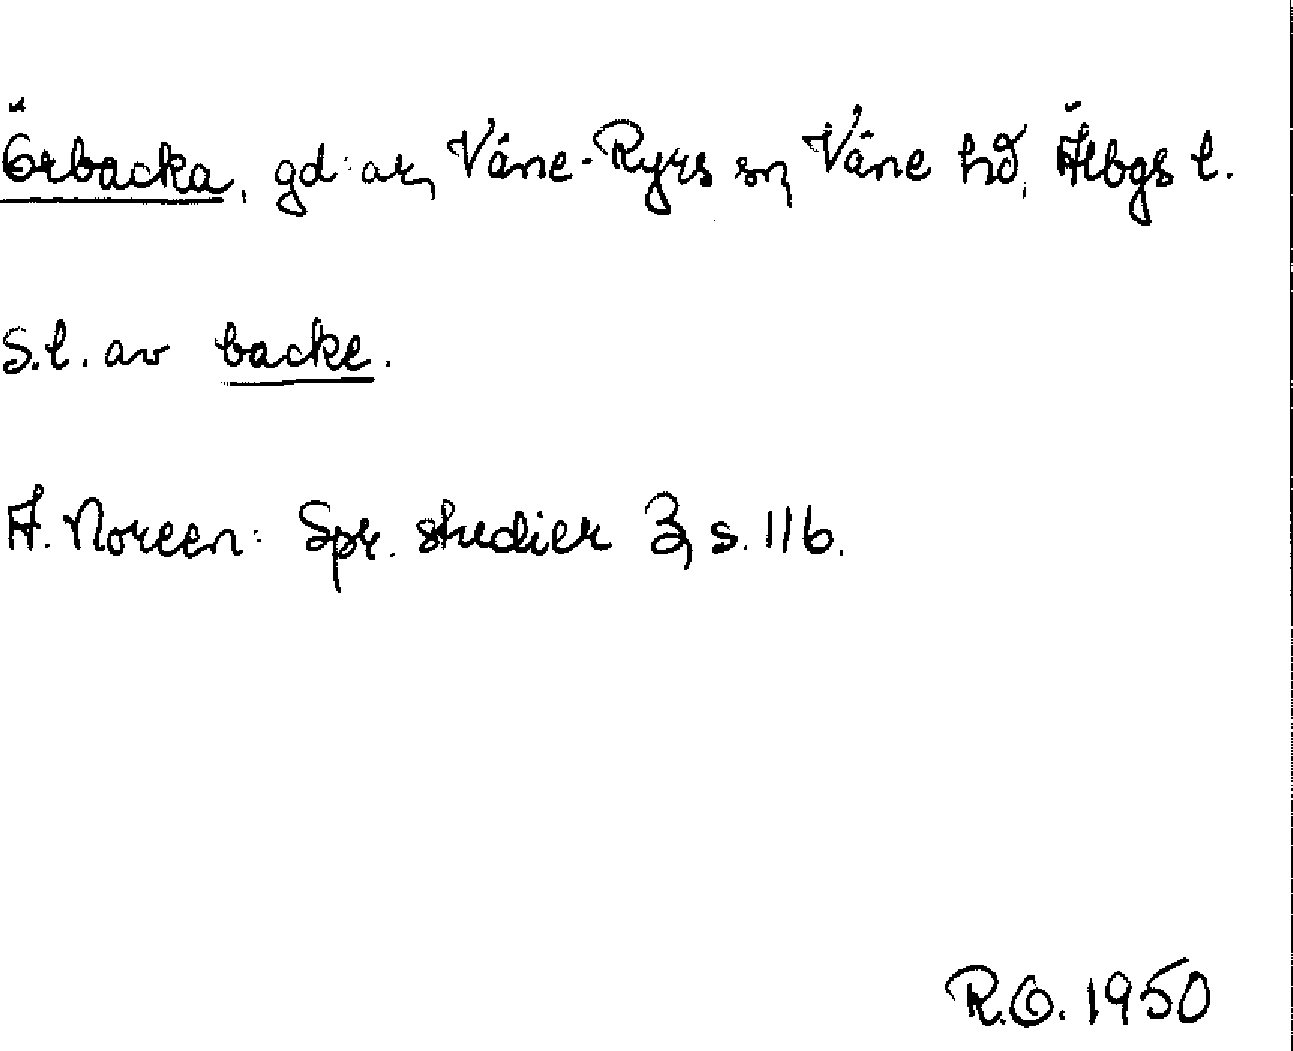 Örbacka, gd:ar, Väne-Ryrs sn, Väne hd, Älbgs l.
S.l. av backe.
A. Noreen: Spr. studier 3, s. 116.
R.O. 1950